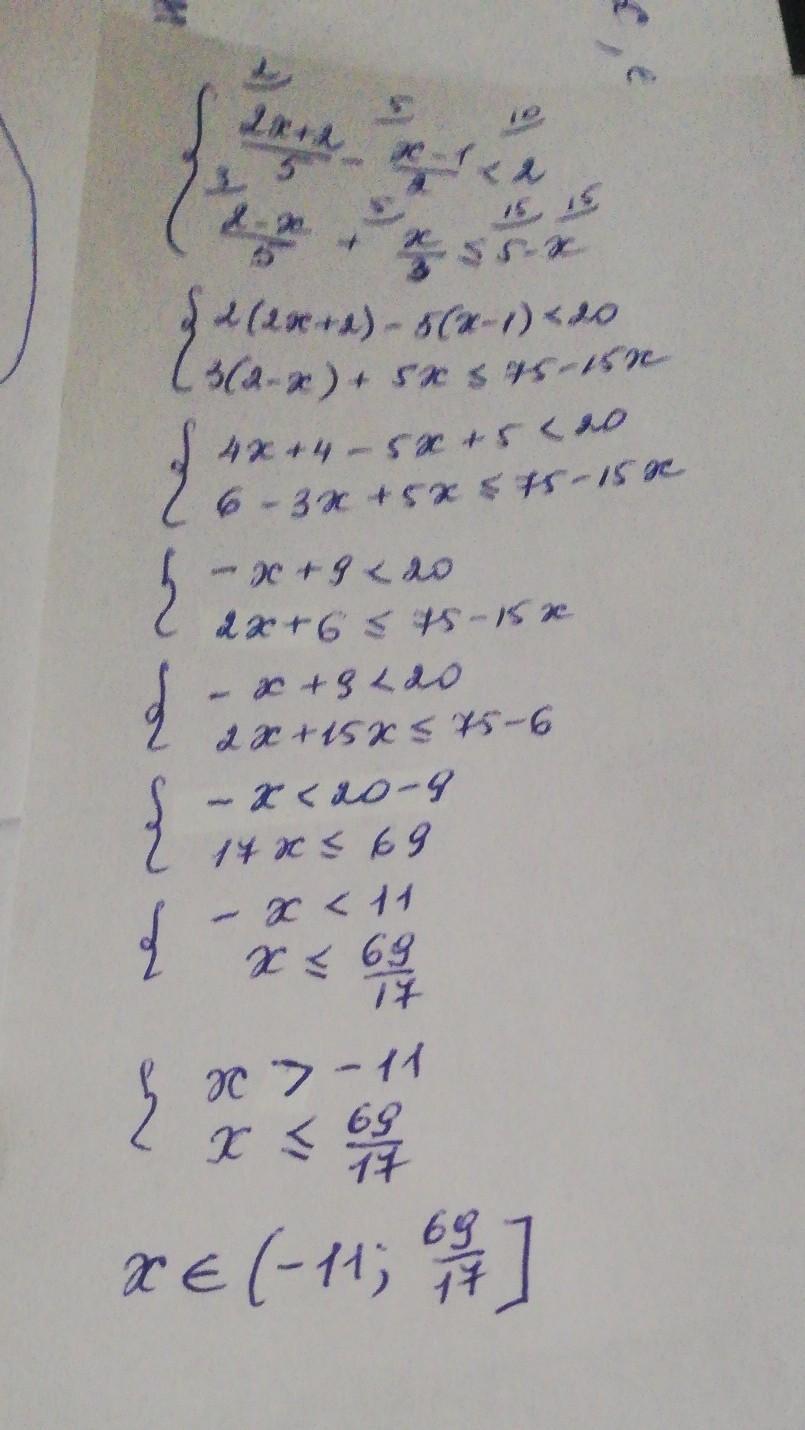 { (2x+2)/5 - (x-1)/2 < 2
(2-x)/5 + x/3 ≤ 5-x
{ 2(2x+2) - 5(x-1) < 20
3(2-x) + 5x ≤ 75-15x
{ 4x+4-5x+5 < 20
6-3x+5x ≤ 75-15x
{ -x+9 < 20
2x+6 ≤ 75-15x
{ -x+9 < 20
2x+15x ≤ 75-6
{ -x < 20-9
17x ≤ 69
{ -x < 11
x ≤ 69/17
{ x > -11
x ≤ 69/17
x ∈ (-11; 69/17]